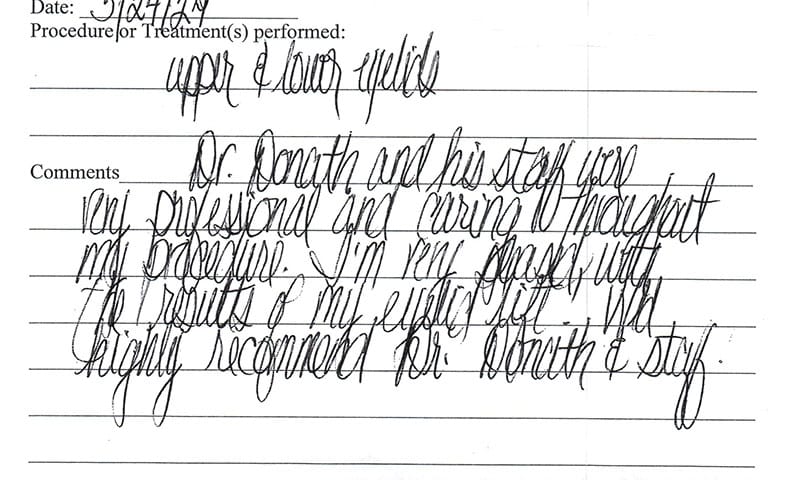 Date: 5/24/24
Procedure or Treatment(s) performed:
upper & lower eyelids
Comments Dr. Donath and his staff were
very professional and caring throughout
my procedure. I'm very pleased with
the results of my eyelid lift. Would
highly recommend Dr. Donath & staff.